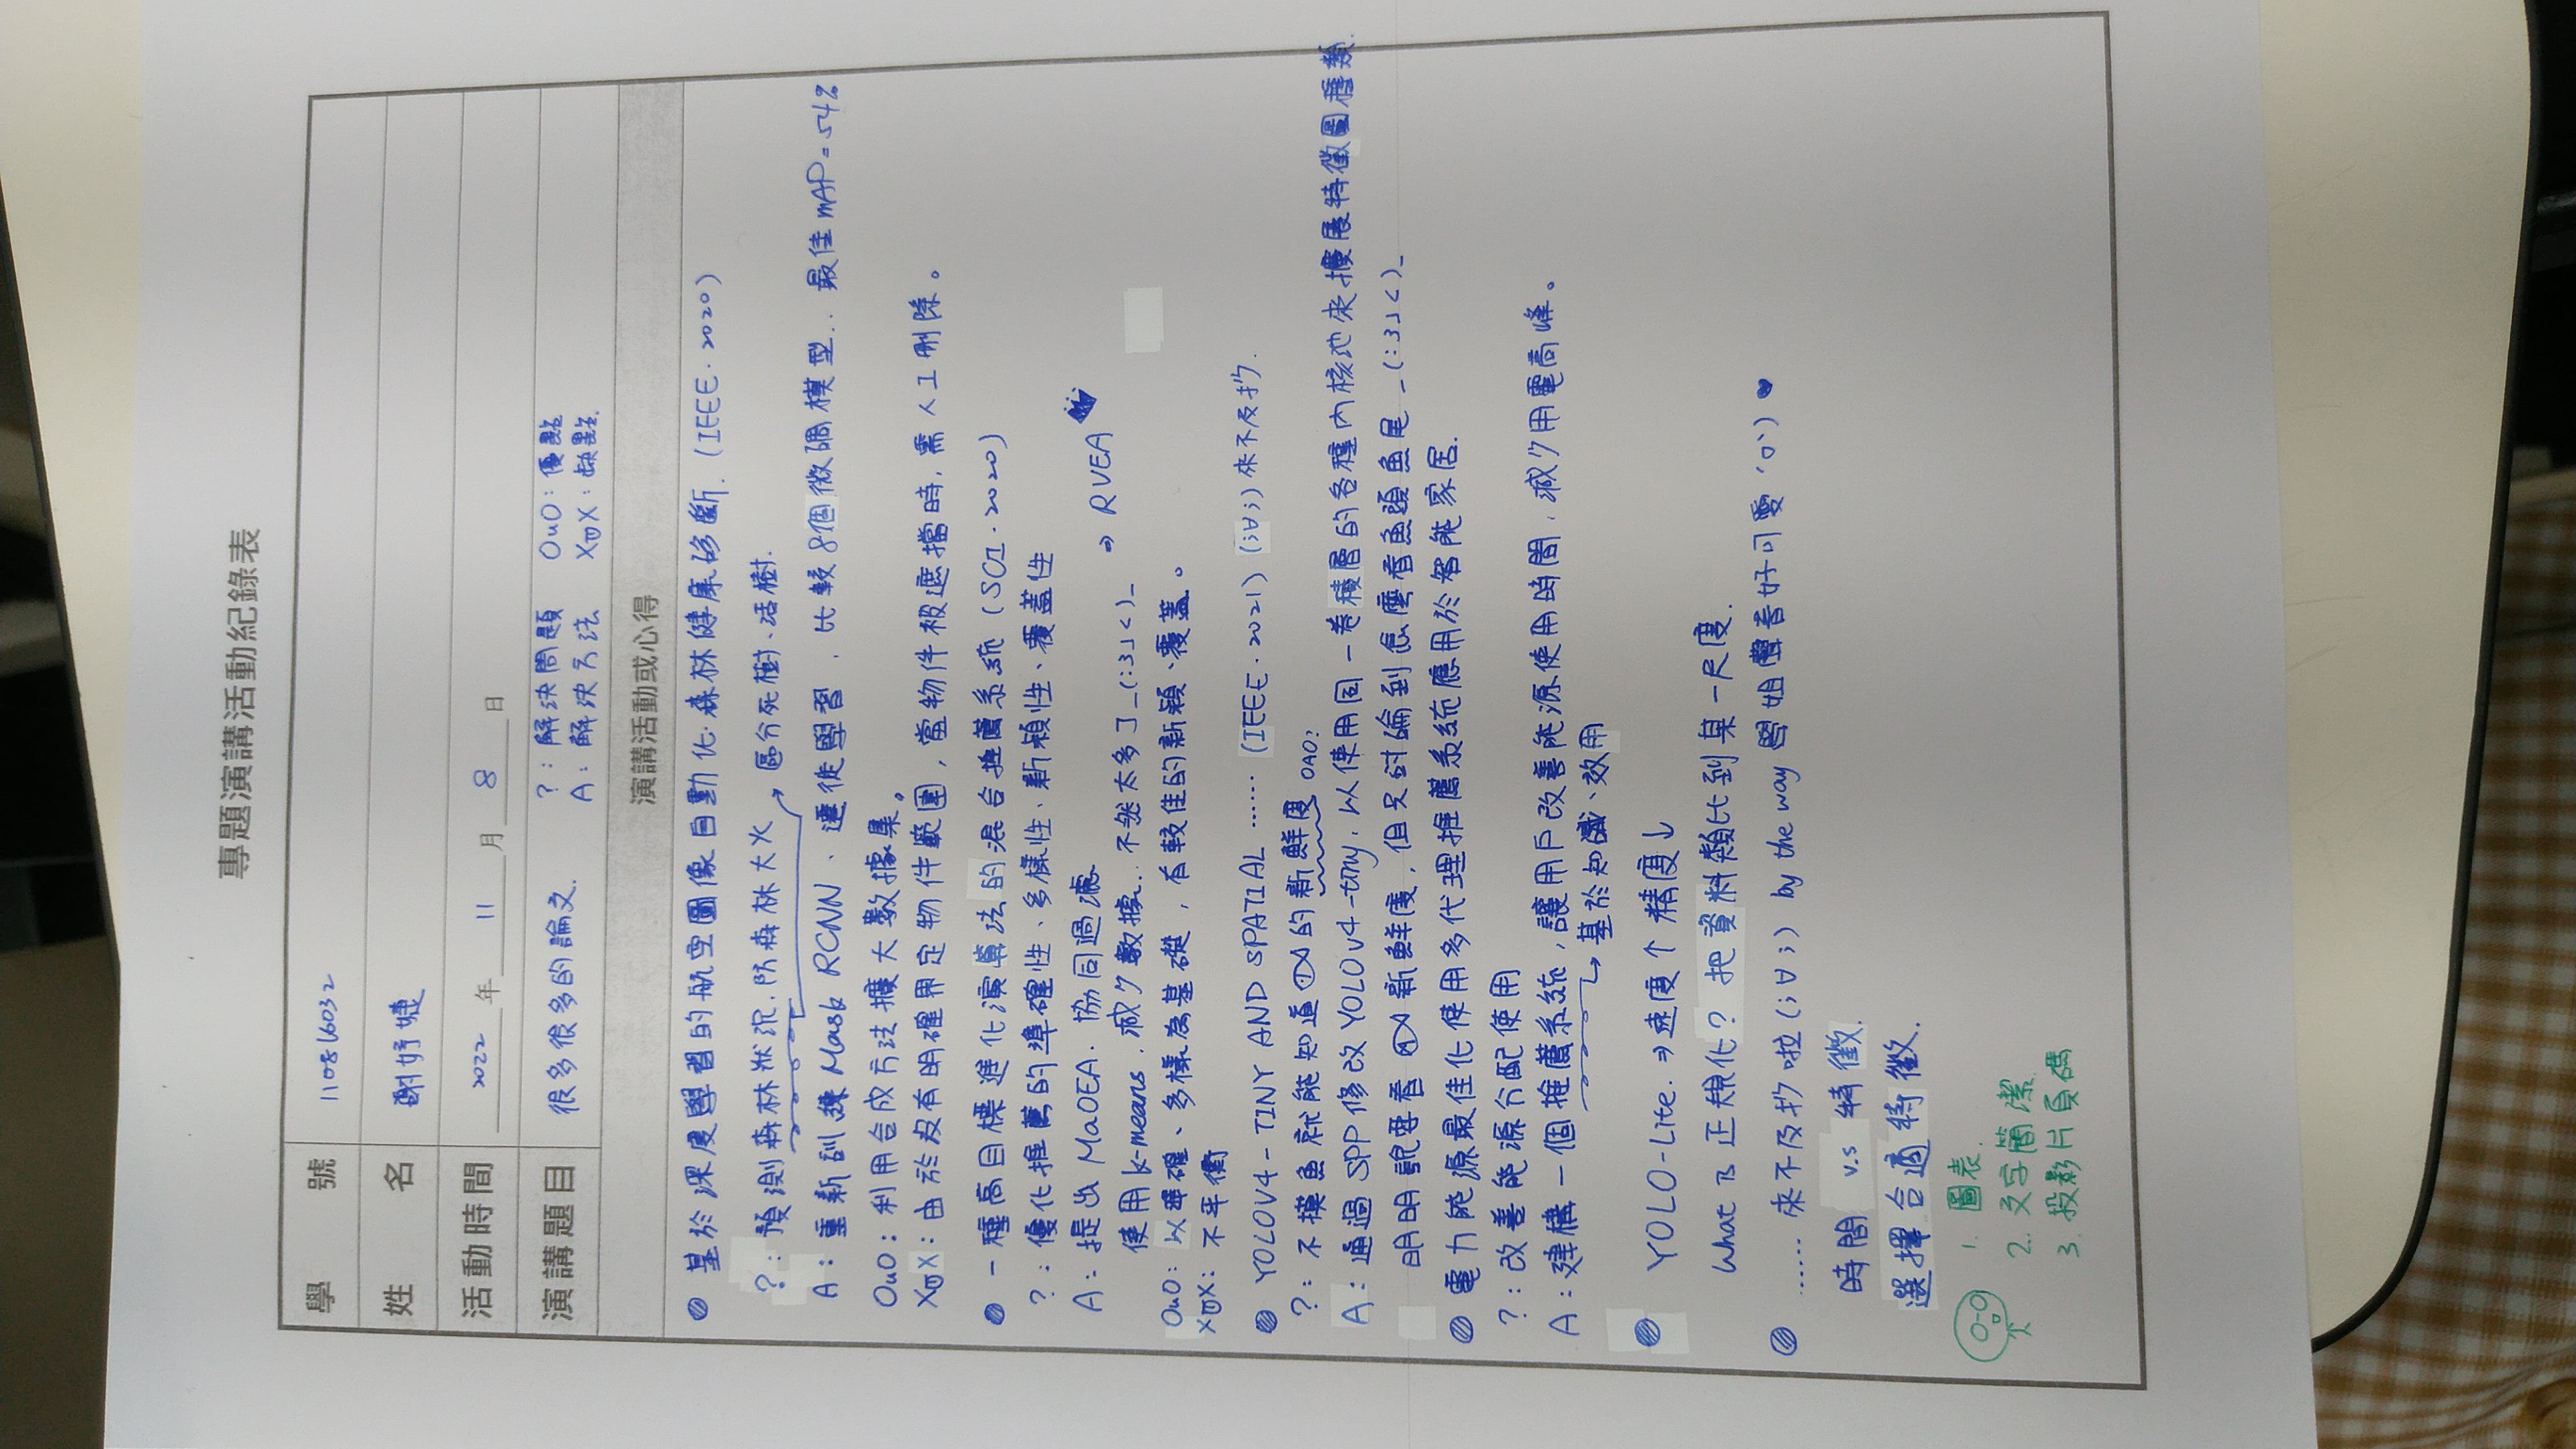 專題演講活動紀錄表
學號 110816032
姓名 謝妤婕
活動時間 2022年11月8日
演講題目 很多很多的論文. ?:解決問題 OuO:優點
A:解決方法 XㄇX:缺點.
演講活動或心得
基於深度學習的航空圖像自動化森林健康診斷. (IEEE.2020)
?:預測森林狀況.防森林大火 → 區分死樹、活樹.
A:重新訓練Mask RCNN、遷徙學習,比較8個微調模型..最佳mAP=54%
OuO:利用合成方法擴大數據集。
XㄇX:由於沒有明確界定物件範圍,當物件被遮擋時,需人工刪除。
一種高目標進化演算法的混合推薦系統(SCI.2020)
?:優化推薦的準確性、多樣性、新穎性、覆蓋性
A:提出MaOEA.協同過濾
使用k-means.減少數據..不然太多了_(:3」<)_ ⇒ RVEA
OuO:以準確、多樣為基礎,有較佳的新穎、覆蓋。
XㄇX:不平衡
YOLOV4-TINY AND SPATIAL …… (IEEE.2021)(;∀;)來不及抄.
?:不摸魚就能知道的新鮮度OAO?
A:通過SPP修改YOLOv4-tiny,以使用同一卷積層的各種內核池來擴展特徵圖種類.
明明說要看新鮮度,但只討論到怎麼看魚頭魚尾_(:3」<)_
電力能源最佳化使用多代理推薦系統應用於智能家居.
?:改善能源分配使用
A:建構一個推薦系統,讓用戶改善能源使用時間,減少用電高峰。
↳基於知識、效用
YOLO-Lite.⇒速度↑精度↓
What 乃正規化?把資料類比到某一尺度.
……來不及抄啦(;∀;) by the way 學姐聲音好可愛'o')♥
時間 v.s 特徵.
選擇合適特徵.
1.圖表.
2.文字簡潔
3.投影片頁碼